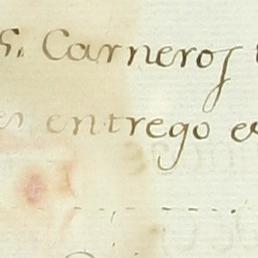 s. Carneros
es entrego e